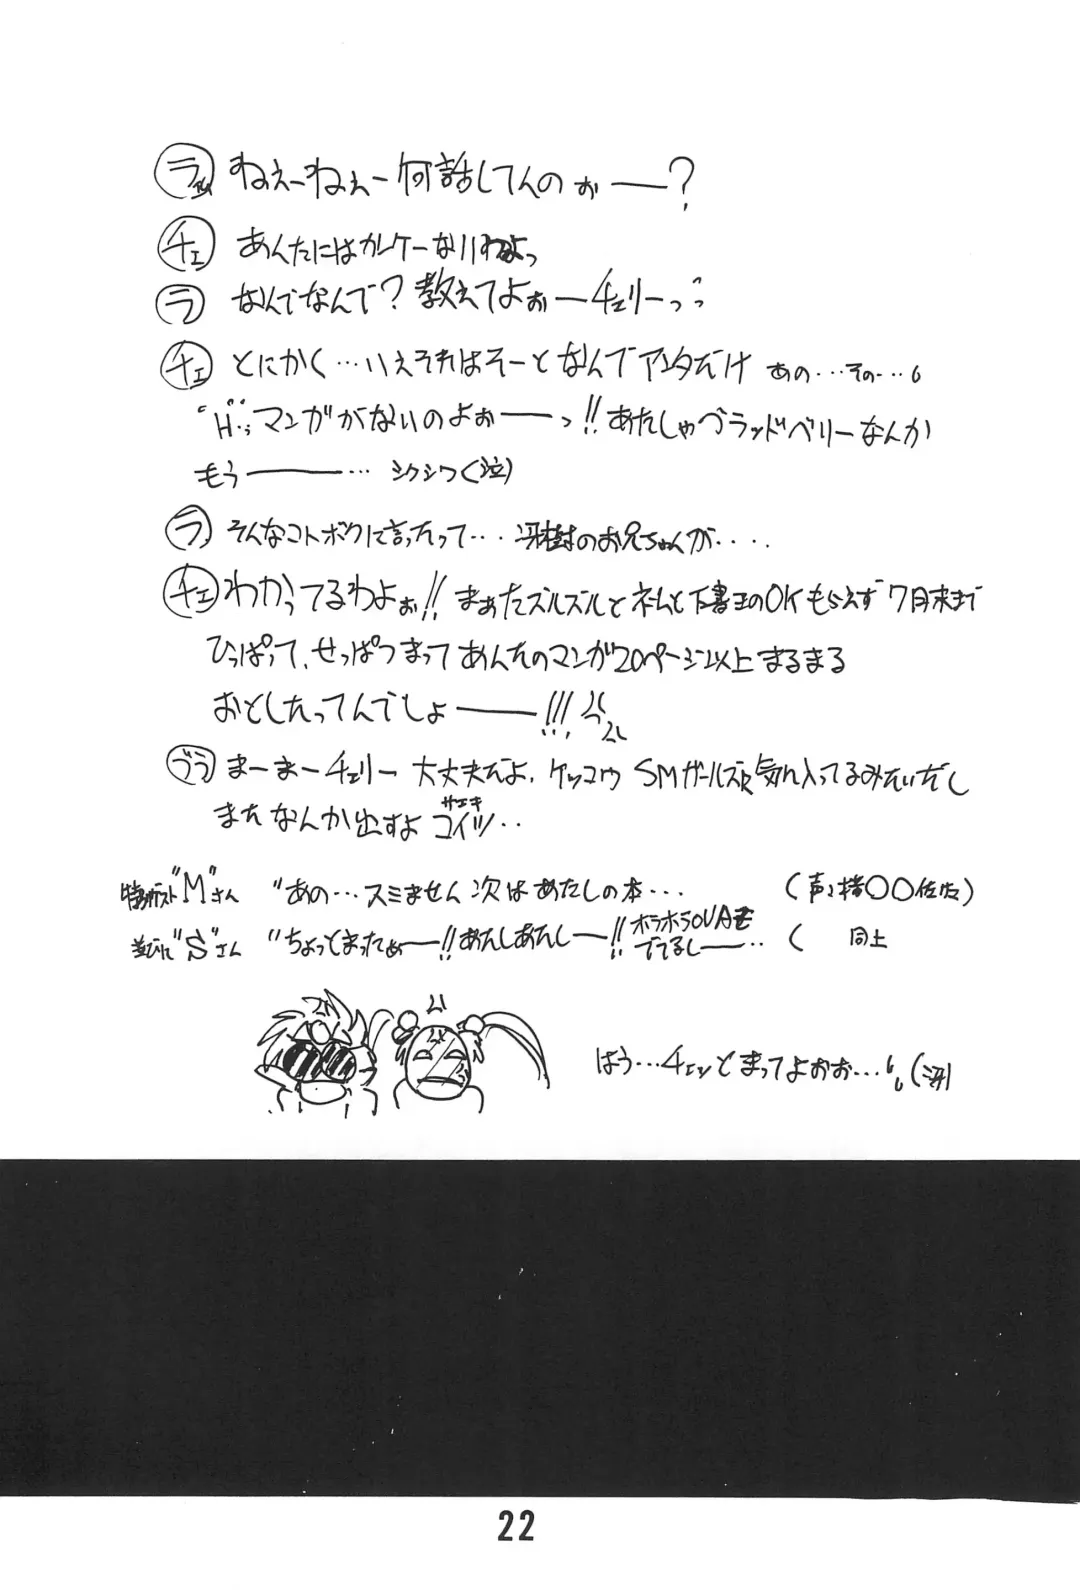 ラ ねぇーねぇー何話してんのぉ――?
チェ あんたにはカンケーないわよっ
ラ なんでなんで?教えてよぉーチェリーっ
チェ とにかく…いえそれはそーとなんでアンタだけ あの…その…
"H"マンガがないのよぉ――っ!!あたしゃブラッドベリーなんか
もう――… シクシク(泣)
ラ そんなコトボクに言ったって…冴樹のお兄ちゃんが‥‥
チェ わかってるわよぉ!!まぁたズルズルとネームと下書きのOKもらえず7月末まで
ひっぱって、せっぱつまってあんたのマンガ20ページ以上まるまる
おとしたってんでしょ――!!!
ブラ まーまーチェリー 大丈夫だよ、ケッコウSMガールズに気に入ってるみたいだし
またなんか出すよコイツ‥
サエキ
特別ゲスト"M"さん "あの…スミません次はあたしの本… (声;緒〇〇佐佐)
並びに"S"さん "ちょっとまったぁー!!あたしあたしー!!ホラホラOVAも
でてるしー‥ ( 同上
はう…チェッとまってよぉぉ…(冴)
22